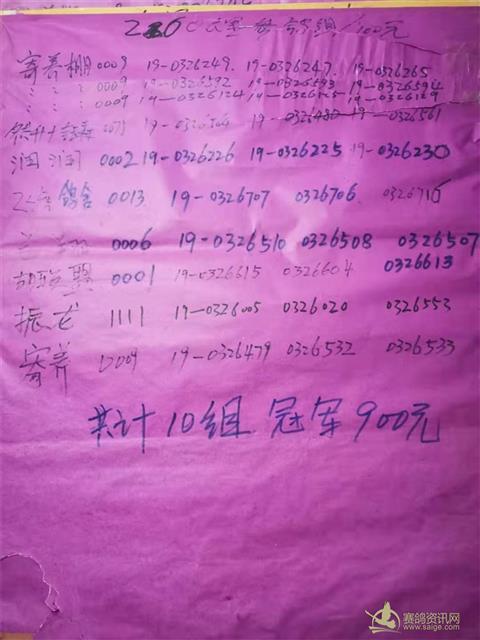 组/100元
寄养棚 0009 19-0326249. 19-0326247. 19-0326265
〃 〃 〃 0009 19-0326592 19-0326593 19-0326594
〃 〃 〃 0009 19-0326124 19-0326125 19-0326129
19-0326561
润润 0002 19-0326226 19-0326225 19-0326230
鸽舍 0013 19-0326707 0326706 0326710
0006 19-0326510 0326508 0326507
0001 19-0326615 0326604 0326613
振龙 1111 19-0326005 0326020 0326553
寄养 0009 19-0326479 0326532 0326533
共计10组 冠军900元
赛鸽资讯网
www.saige.com